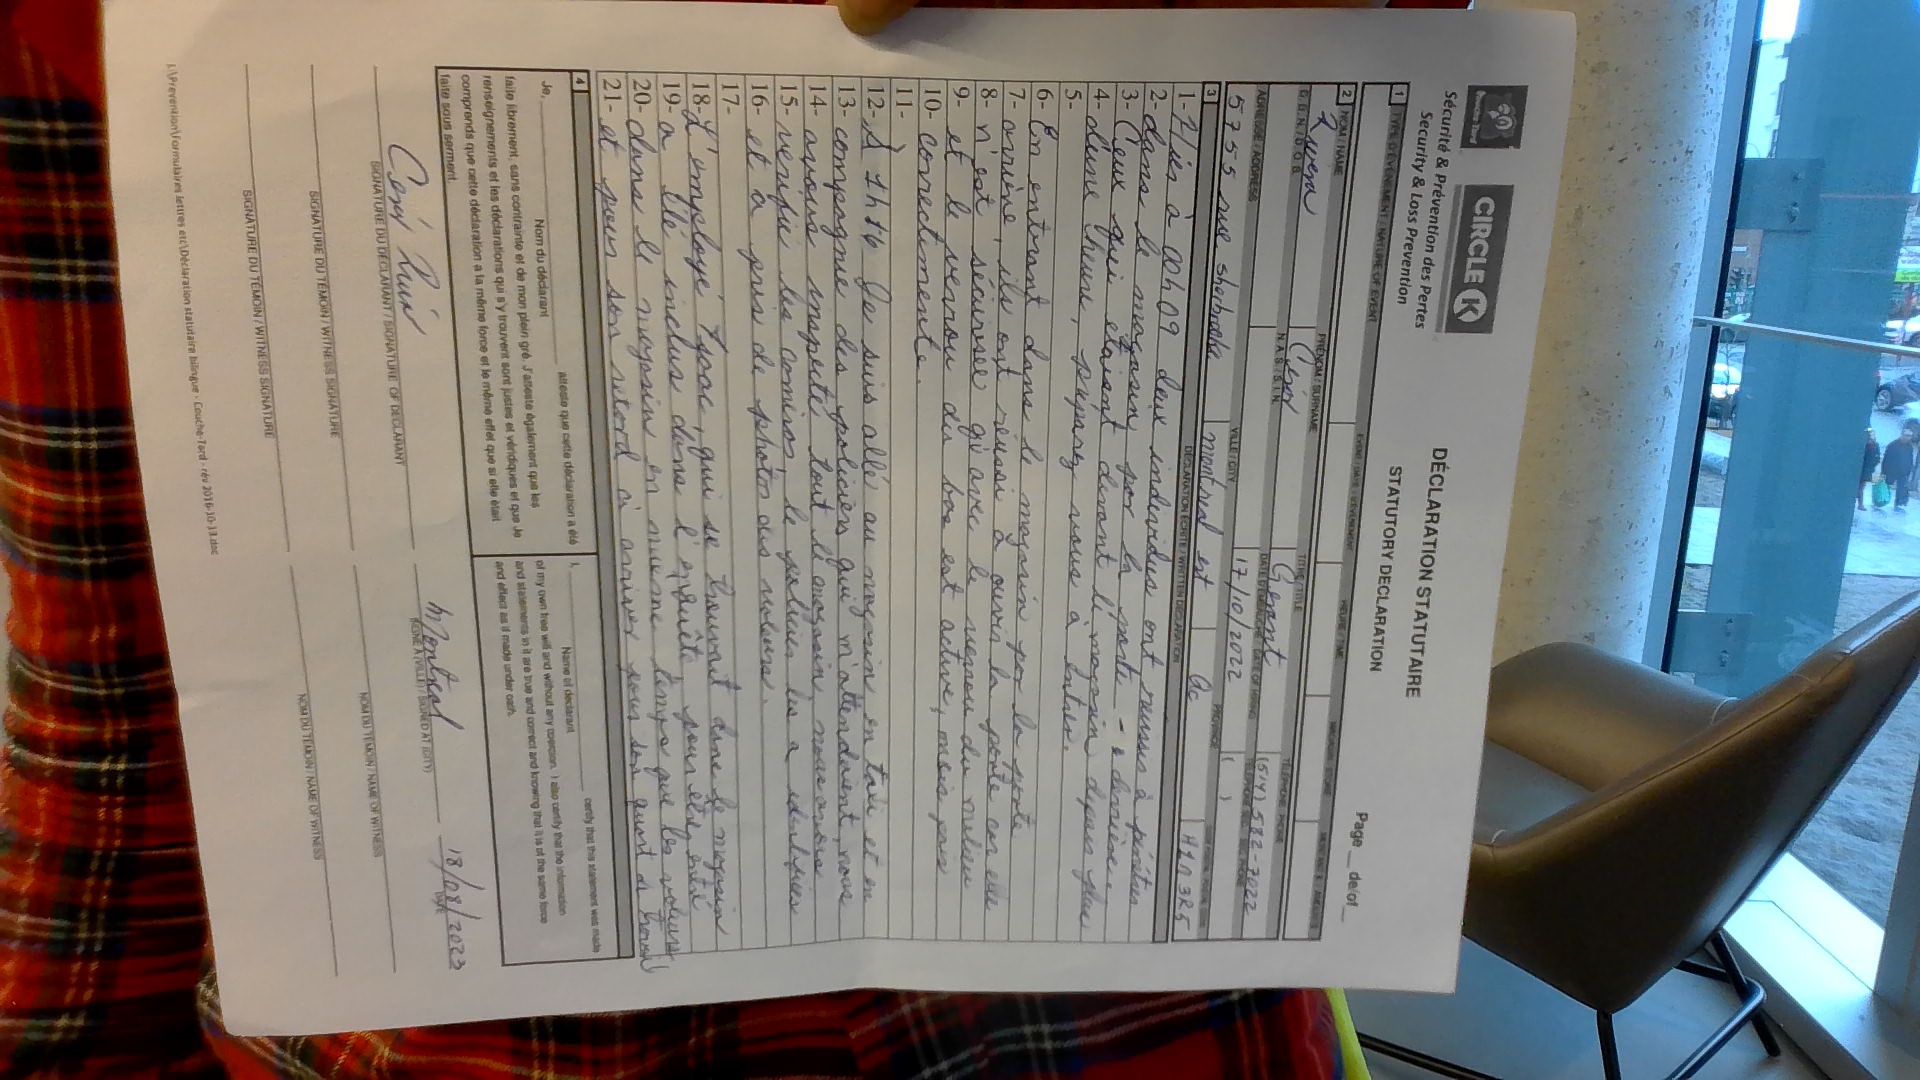 Couche-Tard
CIRCLE K
Sécurité & Prévention des Pertes
Security & Loss Prevention
DÉCLARATION STATUTAIRE
STATUTORY DECLARATION
Page __ de/of __
1 TYPE D'ÉVÉNEMENT / NATURE OF EVENT
HEURE / TIME
2 NOM / NAME
PRÉNOM / SURNAME
TITRE / TITLE
Gérant
D.D.N. / D.O.B.
N.A.S. / S.I.N.
17/10/2022
(514) 582-7022
ADRESSE / ADDRESS
VILLE / CITY
PROVINCE
5755 rue sherbrooke
montréal est
Qc
H1N 3R5
3
DÉCLARATION ÉCRITE / WRITTEN DECLARATION
1- à 00h09 deux individus ont réussis à pénétrer
2- dans le magasin por la porte - a derrière
3- Ceux qui étaient devant le magasin depuis plus
4- d'une heure, préparez vous à entrer.
5-
6- En entrant dans le magasin por la porte
7- arrière, ils ont réussi à ouvrir la porte car elle
8- n'est sécurisé qu'avec le verrou du milieu
9- et le verrou du bas est activé, mais pas
10- correctemente.
11-
12- À 1h16 Je suis allé au magasin en taxi et en
13- compagnie des policiers qui m'attendaient, nous
14- avons inspecté tout le magasin nous avons
15- vérifié les caméras, le policier les a identifiés
16- et a pris de photos des voleurs.
17-
18- L'employé qui se trouvait dans le magasin
19- a été inclus dans l'enquête pour être entré
20- dans le magasin en meme temps que les voleurs
21- et pour son retard à arriver pour son quart de travail
4
Je, ____ atteste que cette déclaration a été
Nom du déclarant
faite librement, sans contrainte et de mon plein gré. J'atteste également que les
renseignements et les déclarations qui s'y trouvent sont justes et véridiques et que je
comprends que cette déclaration a la même force et le même effet que si elle était
faite sous serment.
I, ____ certify that this statement was made
Name of declarant
of my own free will and without any coercion. I also certify that the information
and statements in it are true and correct and knowing that it is of the same force
and effect as if made under oath.
Montreal
18/08/2023
SIGNATURE DU DÉCLARANT / SIGNATURE OF DECLARANT
SIGNÉ À (VILLE) / SIGNED AT (CITY)
DATE
SIGNATURE DU TÉMOIN / WITNESS SIGNATURE
NOM DU TÉMOIN / NAME OF WITNESS
SIGNATURE DU TÉMOIN / WITNESS SIGNATURE
NOM DU TÉMOIN / NAME OF WITNESS
I:\Prevention\Formulaires lettres etc\Déclaration statutaire bilingue - Couche-Tard - rév 2016-10-13.doc